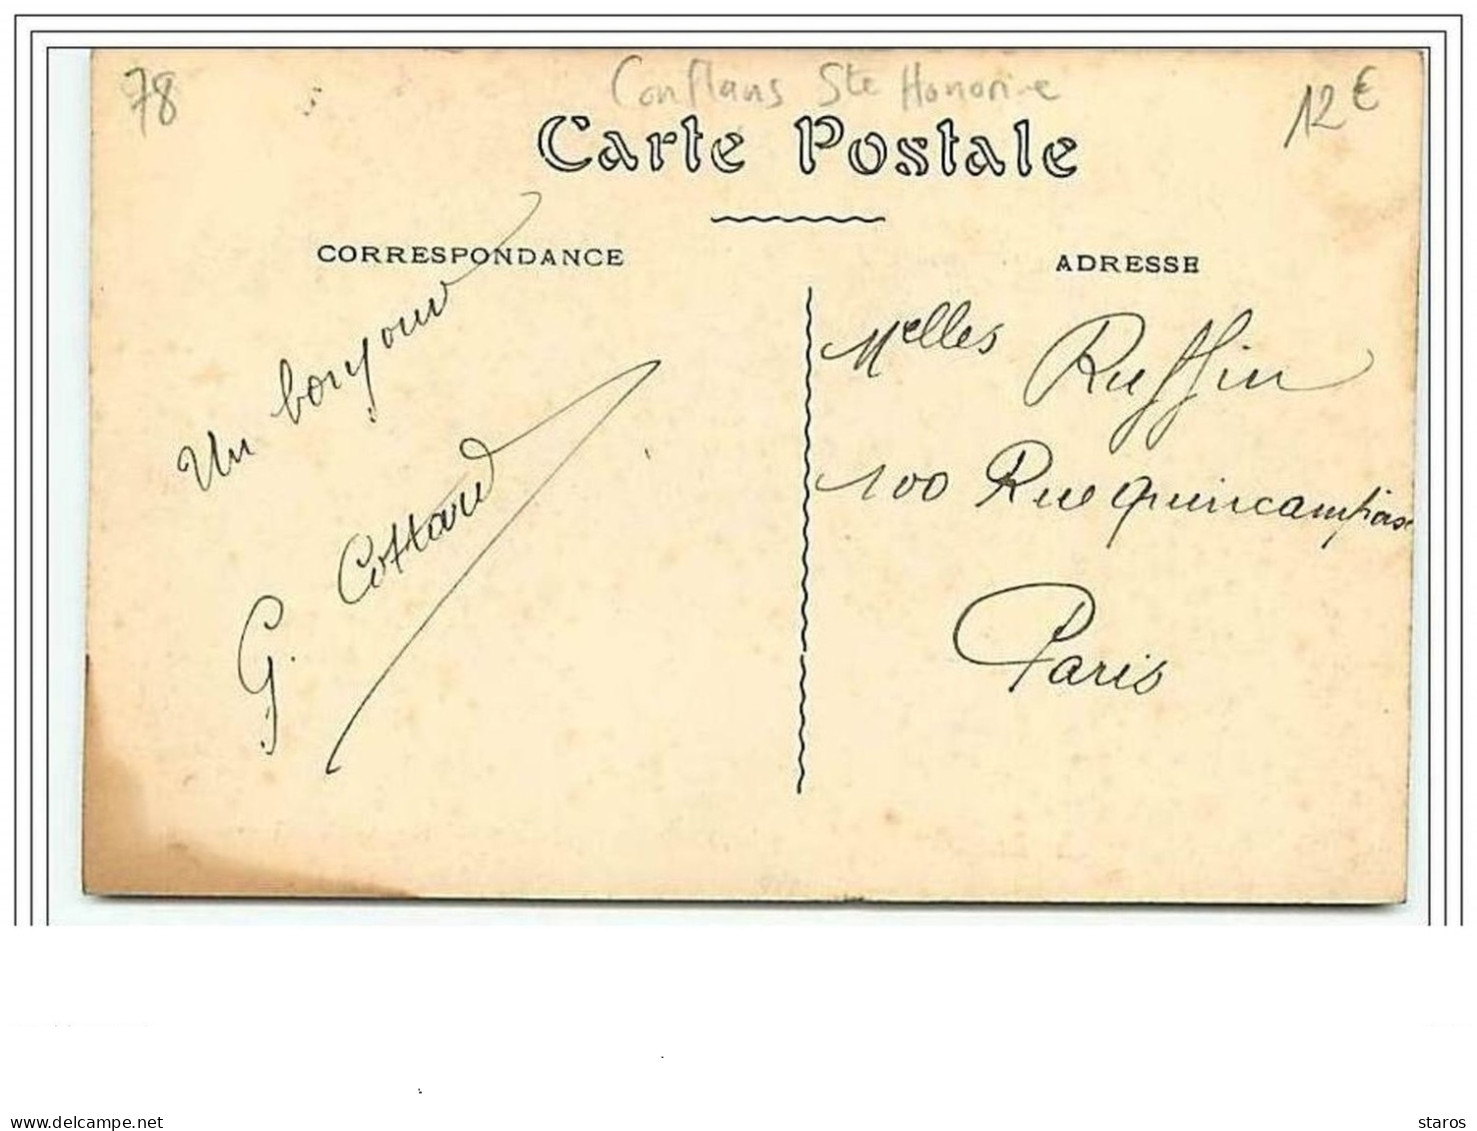 78
Conflans Ste Honorine
12 €
Carte Postale
CORRESPONDANCE
ADRESSE
Un bonjour
G. Cottard
Melles Ruffin
100 Rue quincampoix
Paris
delcampe.net
staros